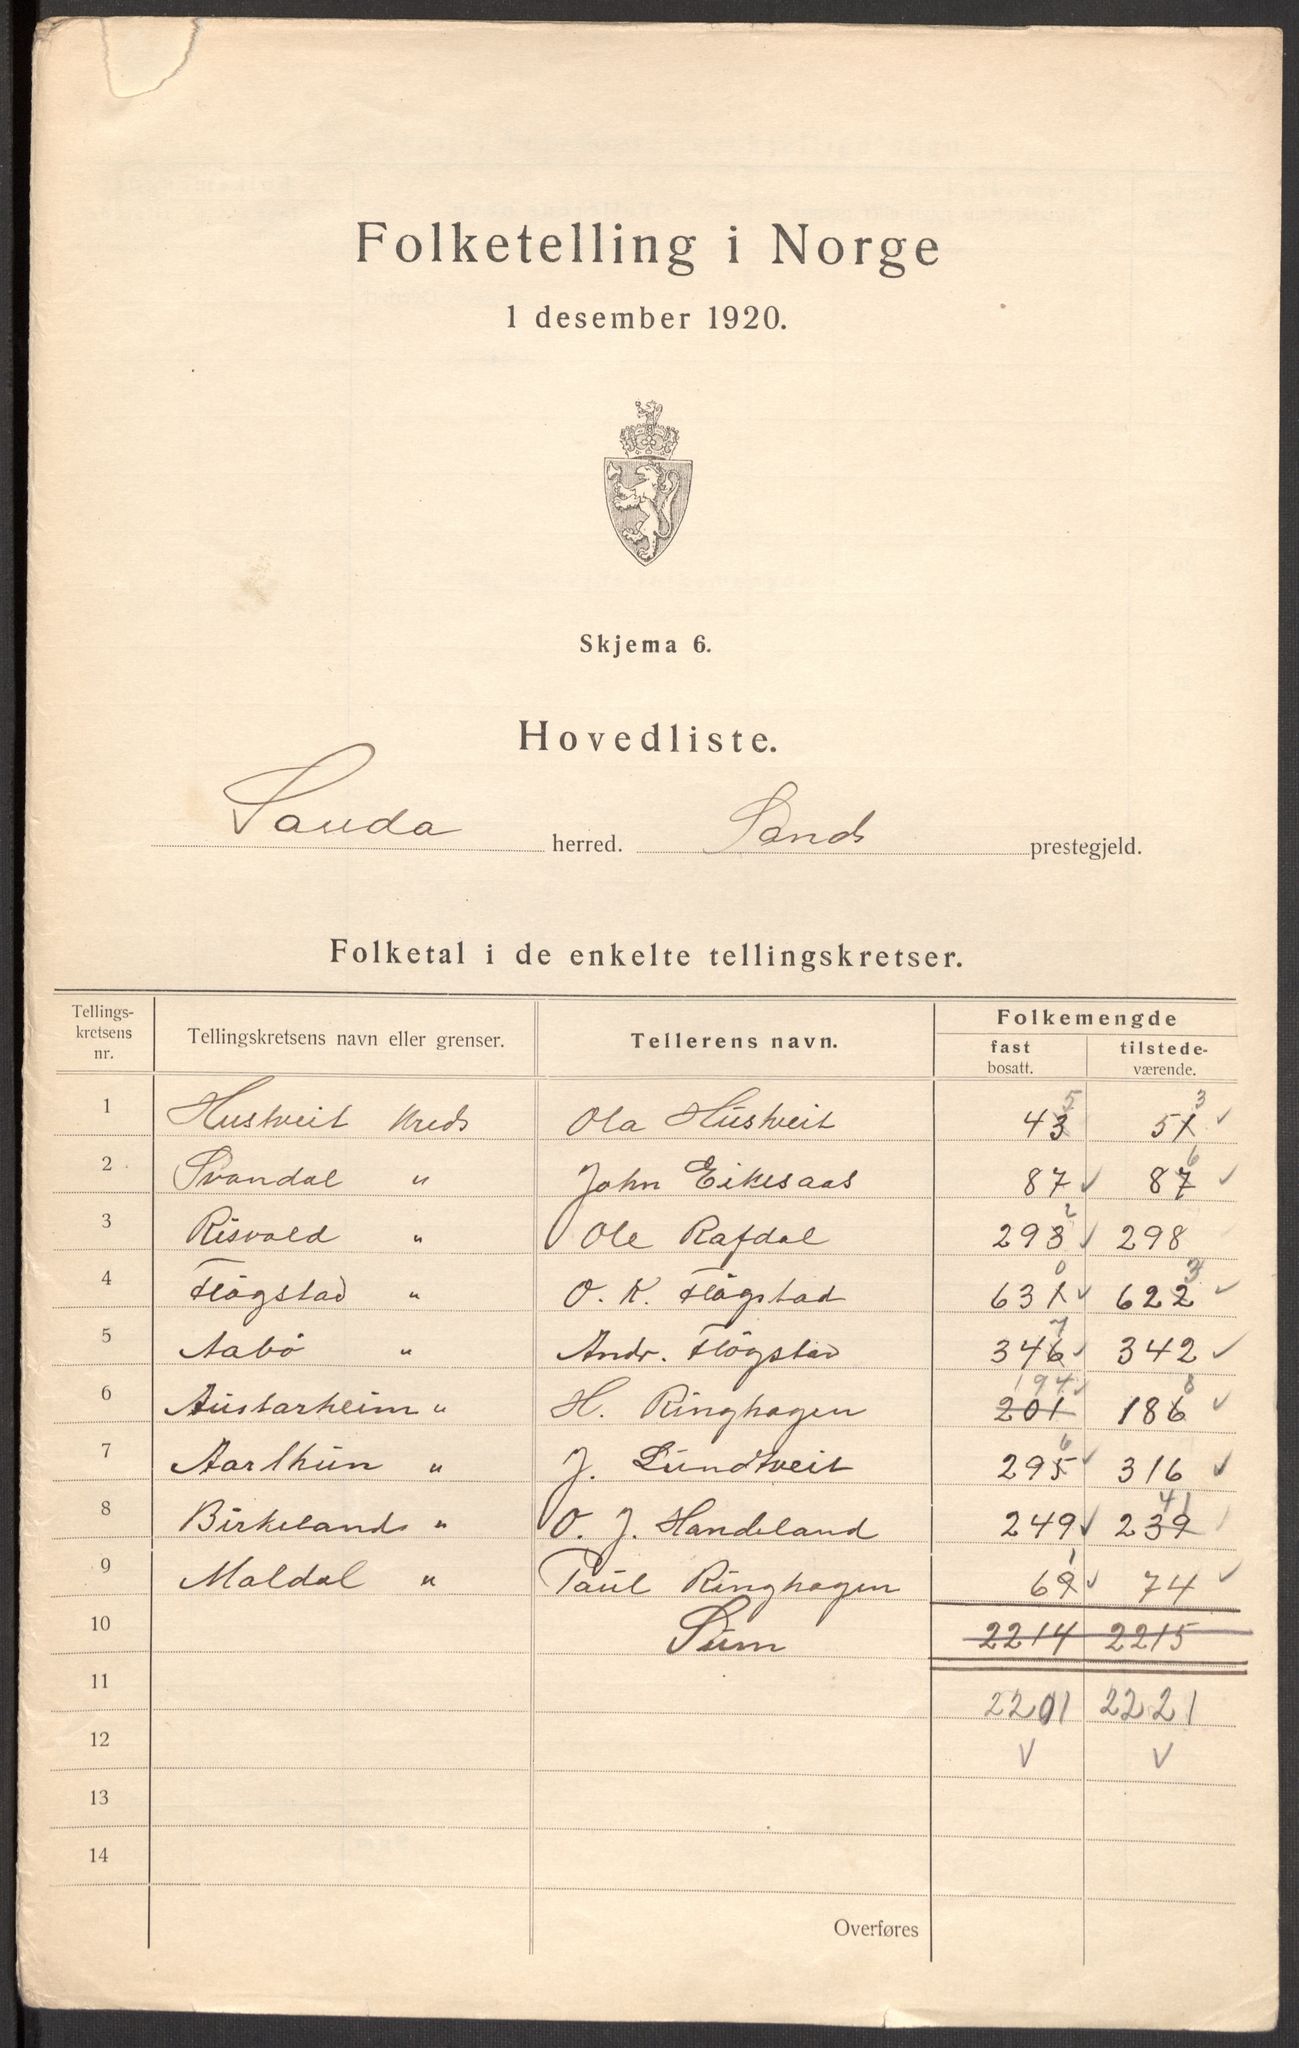 Folketelling i Norge
1 desember 1920.
Skjema 6.
Hovedliste.
Sauda herred. Sands prestegjeld.
Folketal i de enkelte tellingskretser.
Tellings-kretsens nr. Tellingskretsens navn eller grenser. Tellerens navn. Folkemengde fast bosatt. tilstede-værende.
1 Hustveit Kreds Ola Hustveit 43 5 51 3 ✓
2 Svandal " John Eikesaas 87 ✓ 87 6 ✓
3 Risvold " Ole Rafdal 293 2 ✓ 298
4 Fløgstad " O. K. Fløgstad 631 0 ✓ 622 3 ✓
5 Aabø " Andr. Fløgstad 346 7 ✓ 342 ✓
6 Austarheim " H. Ringhagen 201 194 ✓ 186 8 ✓
7 Aarthun " J. Lundtveit 295 6 ✓ 316 ✓
8 Birkelands " O. J. Handeland 249 ✓ 239 41
9 Maldal " Paul Ringhagen 69 1 ✓ 74 ✓
10 Sum 2214 2215
11 2201 2221
12 V V
13
14
Overføres